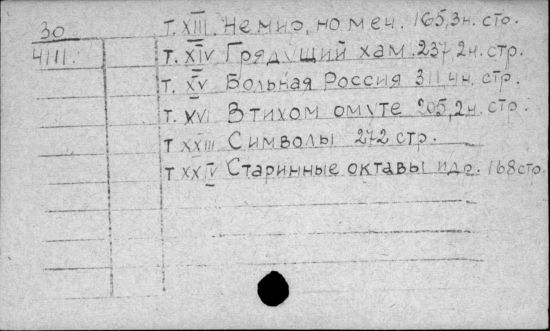 30
4111.
т. XIII. Не мир, но меч. 165,3н. стр.
т. XIV Грядущий хам. 237,2н. стр.
т. XV Больная Россия 311,4н. стр.
т. XVI В тихом омуте 205,2н. стр.
т XXIII Символы 272 стр.
т XXIV Старинные октавы и др. 168 стр.